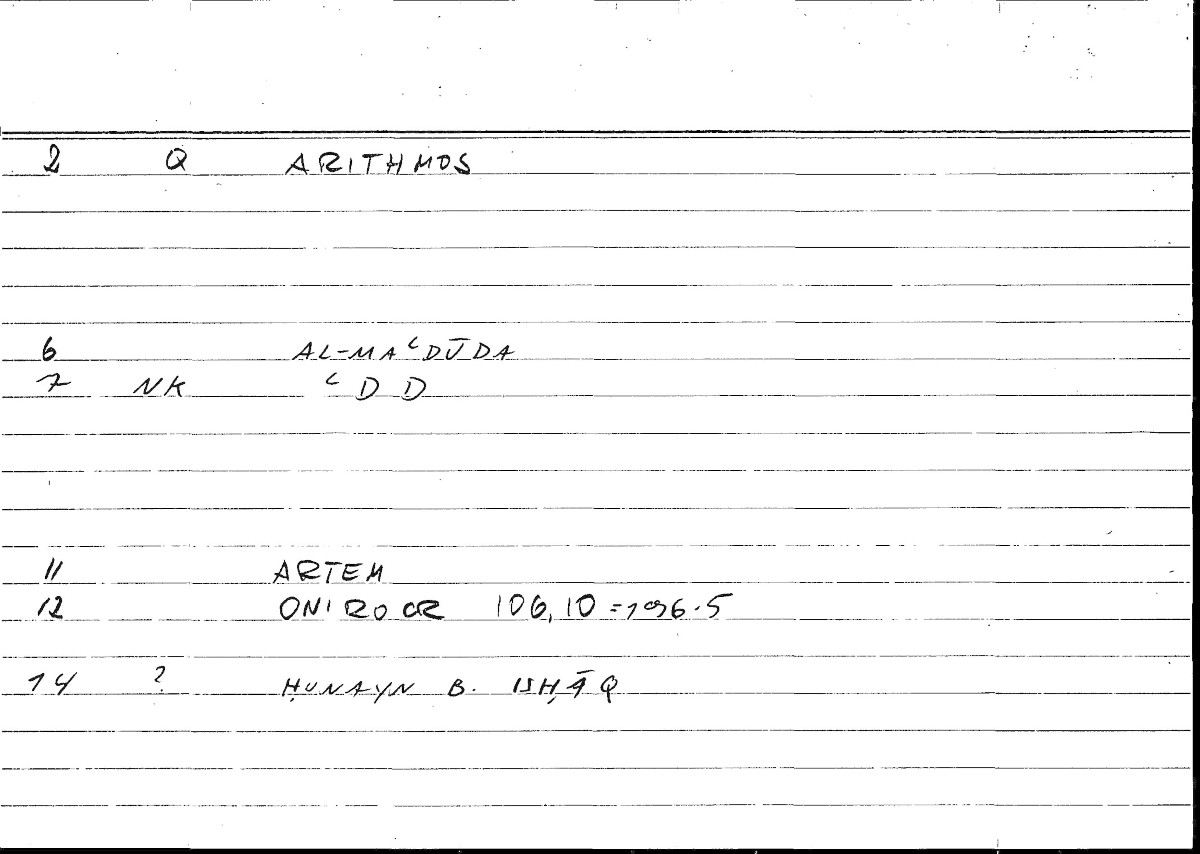 2 Q ARITHMOS
6 AL-MAʿDŪDA
7 NK ʿ D D
11 ARTEM
12 ONIROCR 106,10 = 196.5
14 ? ḤUNAYN B. ISḤĀQ